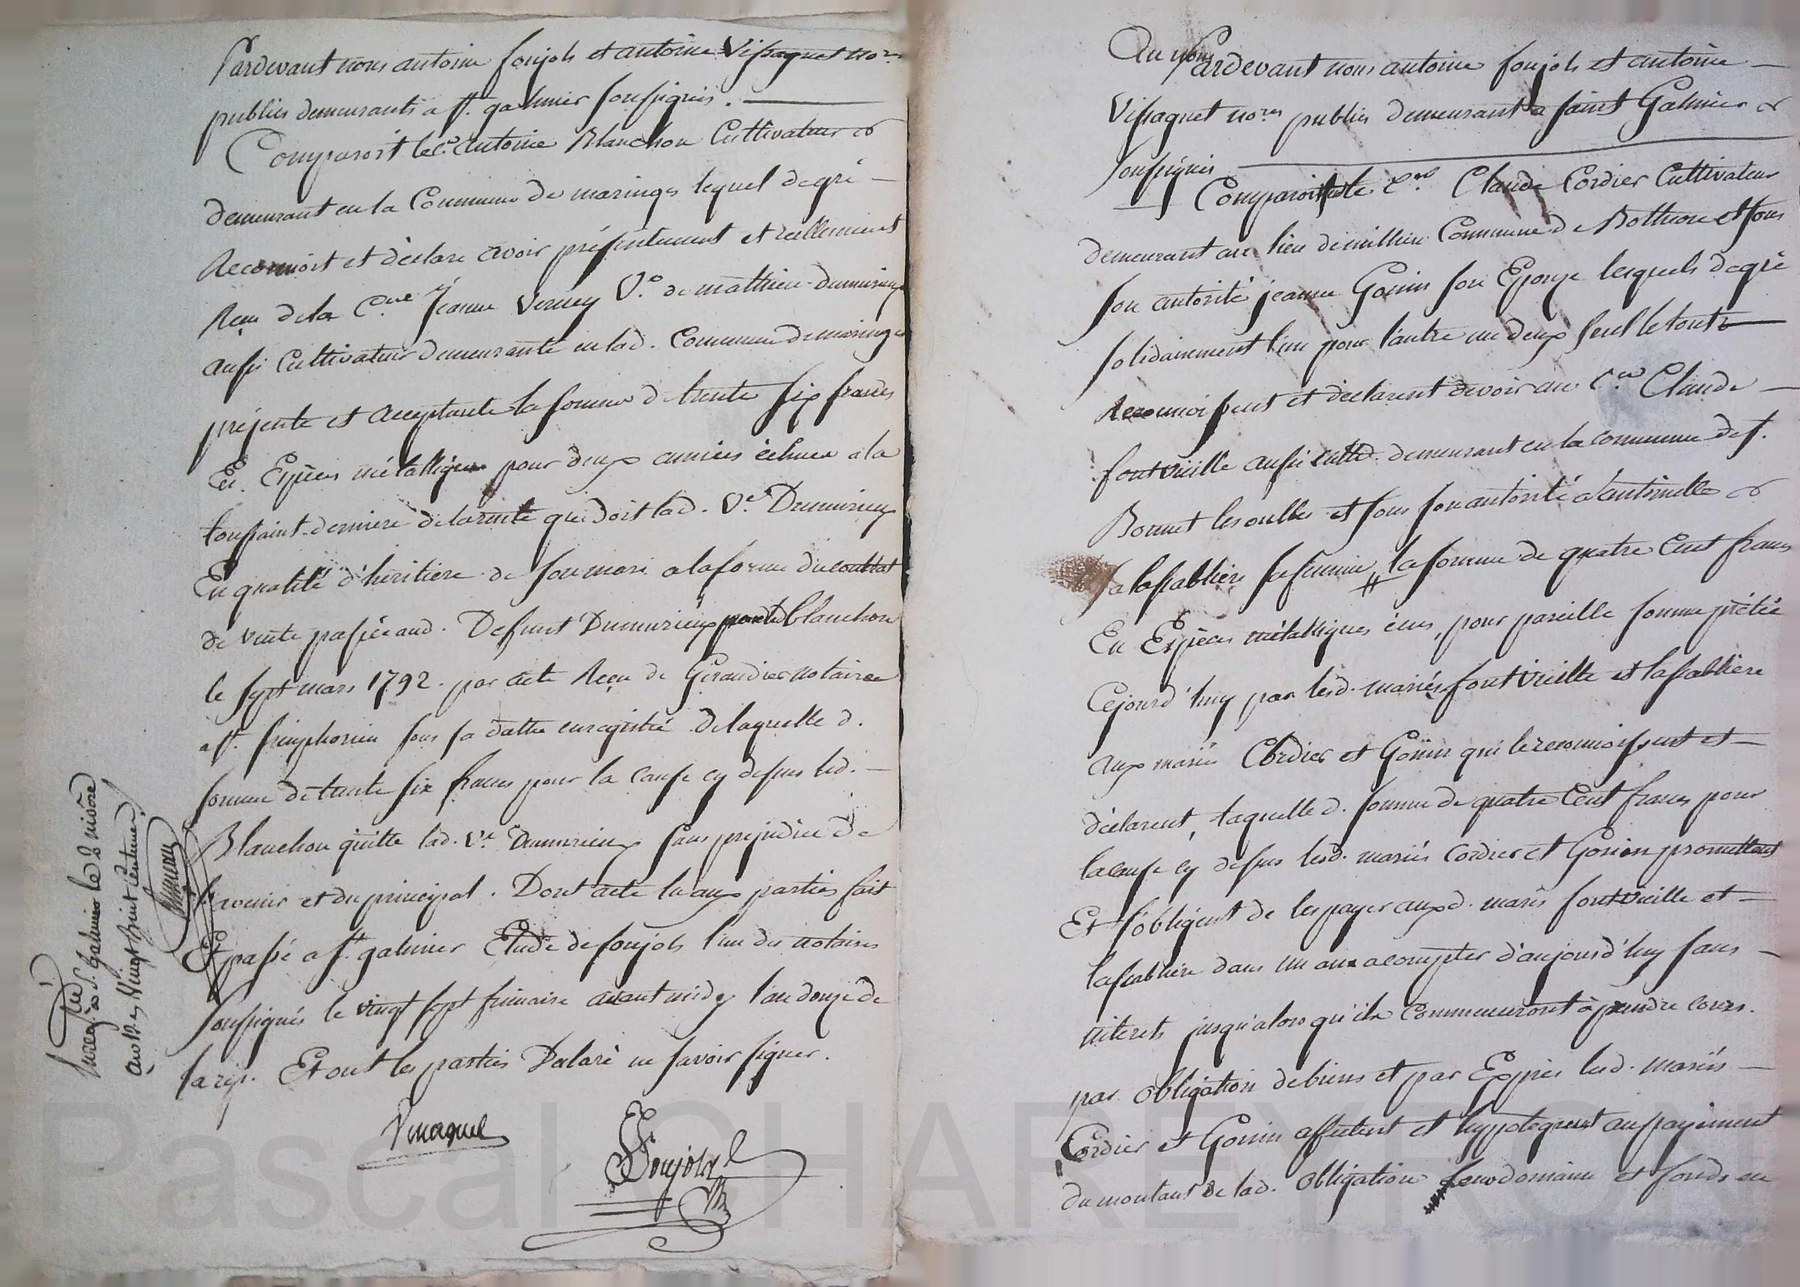 Pardevant nous antoine foujols et antoine Vissaguet no.res
publics demeurants a st. galmier soussignés.
Comparoit le c.en antoine Blanchon Cultivateur &
demeurant en la Commune de maringes lequel de gré
Reconnoit et déclare avoir présentement et réellement
Reçu de la C.nne Jeanne Verney V.e de mathieu dumirieux
aussi Cultivateur demeurante en lad. Commune de maringes
présente et acceptante la somme de trente six francs
En Espèces métalliques pour deux années échues a la
toussaint dernière de la rente que doit lad. V.e Dumirieux
En qualité d'héritière de son mari a la forme du contrat
de vente passée aud. Defunt Dumirieux par led. blanchon
le sept mars 1792. par acte Reçu de Giraudier notaire
a st. simphorien sous sa datte enregistré de laquelle d.
somme de trente six francs pour la cause cy dessus led.
Blanchon quitte lad. V.e Dumirieux sans prejudice de
l'avenir et du principal. Dont acte lu aux parties fait
Et passé a st. galmier Etude de foujols l'un des notaires
soussignés le vingt sept frimaire avant midy l'an douze de
la rép. Et ont les parties Declaré ne savoir signer.
Vissaguet
Foujols
Enreg.é a St. Galmier le 2 nivose
an 12
Pardevant nous antoine foujols et antoine
Vissaguet no.res publics demeurant a saint Galmier &
soussignés
Comparoit le C.en Claude Cordier Cultivateur
demeurant au lieu de millieu Commune de Bothéon et sous
son autorité jeanne Gonin son Epouse lesquels de gré
solidairement l'un pour l'autre un deux seul le tout
Reconnoissent et déclarent devoir au C.en Claude
fontvieille aussi cult.r demeurant en la commune de st.
Bonnet les oulles et sous son autorité a antoinette &
a lassablière sa femme la somme de quatre Cent francs
En Espèces métalliques écus, pour pareille somme prêtée
Cejourd'huy par lesd. mariés fontvieille et lassablière
aux mariés Cordier et Gonin qui le reconnoissent et
déclarent, laquelle d. somme de quatre Cent francs pour
la cause cy dessus lesd. mariés Cordier et Gonin promettent
Et s'obligent de les payer auxd. mariés fontvieille et
lassablière dans un an a compter d'aujourd'huy sans
interets jusqu'alors qu'ils Commenceront à prendre cours.
par obligation de biens et par Exprès lesd. mariés
Cordier et Gonin affectent et hypotequent au payement
du montant de lad. obligation leur domaine et fonds en
Pascal CHAREYRON